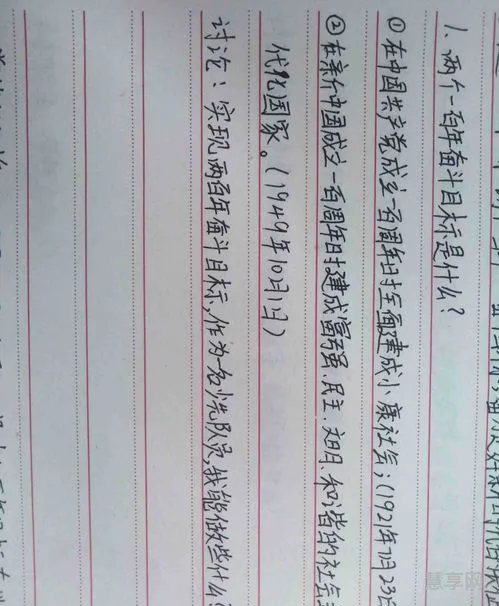 1、两个一百年奋斗目标是什么?
①在中国共产党成立一百周年时全面建成小康社会;(1921年7月23日
②在新中国成立一百周年时建成富强、民主、文明、和谐的社会主
代化国家。(1949年10月1日)
讨论:实现两百年奋斗目标,作为一名少先队员,我能做些什么?
慧享网